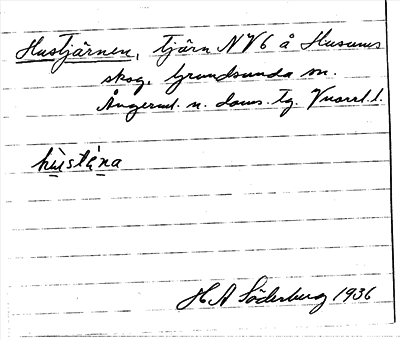 Hustjärnen, tjärn NV6 å Husums
skog, Grundsunda sn.
Ångerml. n. doms. tg. Vnorrl. l.
hùsténa
H A Söderberg 1936